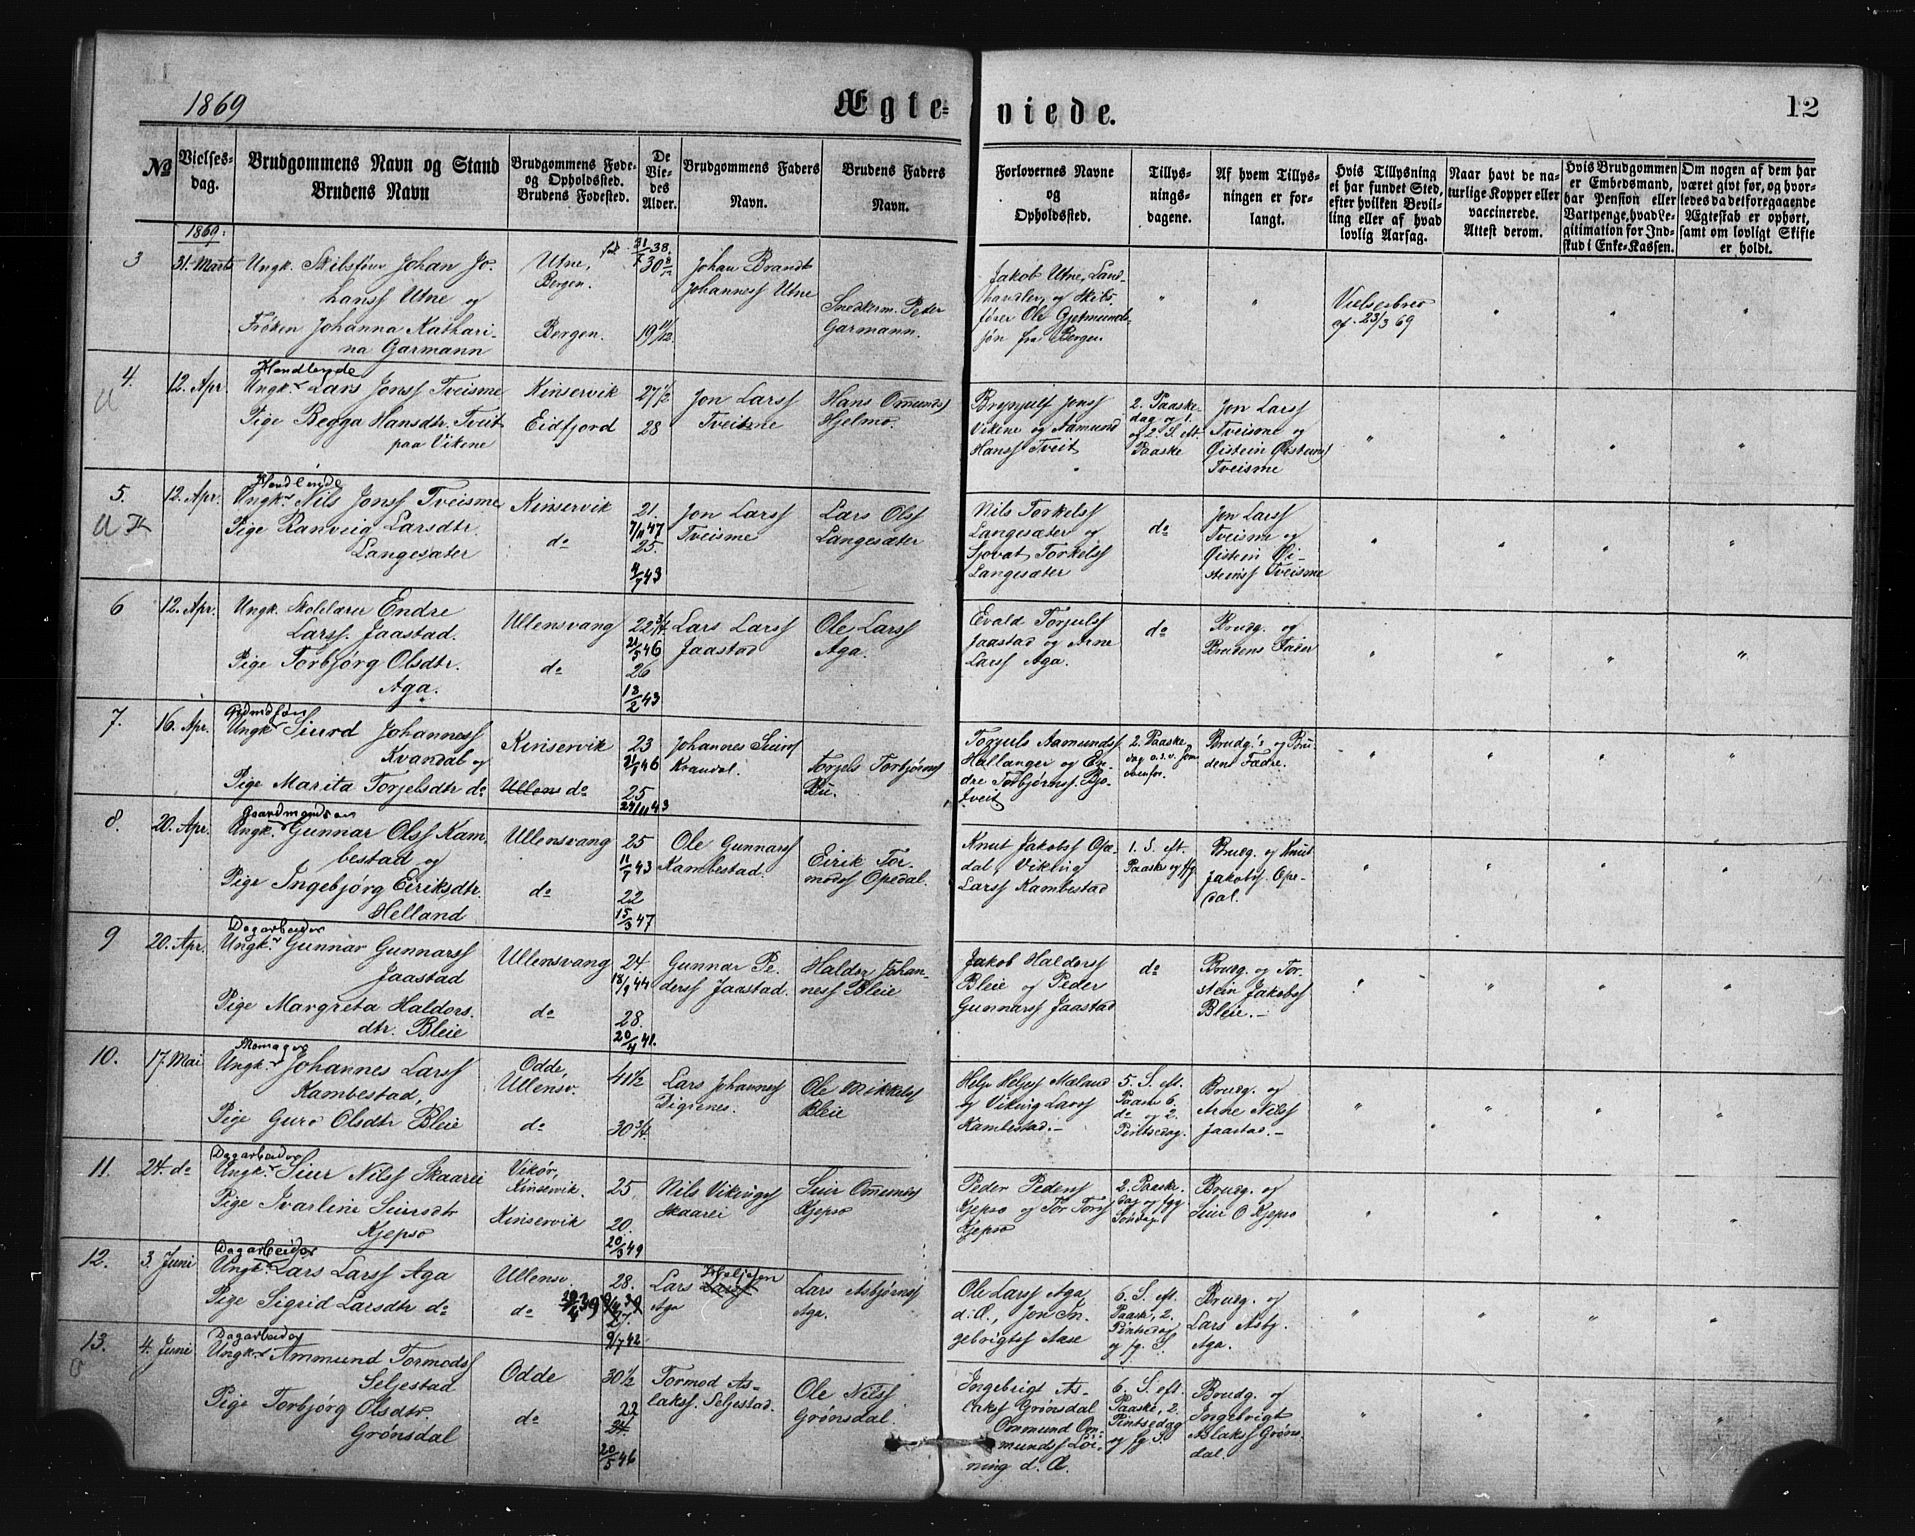 1869
Ægte= viede.
12
№
Vielses-
dag.
Brudgommens Navn og Stand
Brudens Navn
Brudgommens Føde-
og Opholdssted.
Brudens Fødested.
De
Vie-
des
Alder.
Brudgommens Faders
Navn.
Brudens Faders
Navn.
Forlovernes Navne
og
Opholdssted.
Tillys-
nings-
dagene.
Af hvem Tillys-
ningen er for-
langt.
Hvis Tillysning
ei har fundet Sted,
efter hvilken Bevil-
ling eller af hvad
lovlig Aarsag.
Naar havt de na-
turlige Kopper eller
vaccinerede.
Attest derom.
Hvis Brudgommen
er Embedsmand,
har Pension eller
Vartpenge, hvad Le-
gitimation for Ind-
skud i Enke-Kassen.
Om nogen af dem har
været gift før, og hvor-
ledes da det foregaaende
Ægteskab er ophørt,
samt om lovligt Skifte
er holdt.
1869.
3
31. Marts
Ungk. Skibsfører Johan Jo-
hanss Utne og
Frøken Johanna Kathari-
na Garmann
Utne,
Bergen.
Bergen.
31/7 38.
30 8/12
19 11/12
Johan Brandt
Johanness Utne
Snedkerm. Peter
Garmann.
Jakob Utne, Land-
handler, og Skibs-
fører Ole Gjetmunds-
jøn fra Bergen.
"
"
Vielsesbrev
af 23/3 69
"
"
"
4.
U
12. Apr.
Handlende
Ungk. Lars Jonss Tveisme
Pige Begga Hansdtr. Tveit
paa Vikene
Kinservik
Eidfjord
27 1/2
28
Jon Larss
Tveisme
Hans Omunds
Hjelmo.
Brynjulf Jonss
Vikene og Aamund
Hanss Tveit
2. Paaske-
dag og 1.
og 2. S. eft.
Paaske
Jon Larss
Tveisme og
Øistein Øisteins
Tveisme
5.
U
12. Apr.
Handlende
Ungk. Nils Jonss Tveisme
Pige Ranveig Larsdtr.
Langesæter
Kinservik
do
21.
7/11 47
25.
4/7 43
Jon Larss
Tveisme
Lars Olss
Langesæter
Nils Torkelss
Langesæter og
Sjovat Torkelss
Langesæter
do
Jon Larss
Tveisme og
Øistein Øi-
steinss Tveisme
6
12. Apr.
Ungk. Skolelærer Endre
Larss. Jaastad.
Pige Torbjørg Olsdtr.
Aga.
Ullensvang
do
22 3/4
21/5 46
26
12/2 43
Lars Larss
Jaastad
Ole Larss
Aga.
Evald Torjulss
Jaastad og Arne
Larss Aga.
do
Brudg. og
Brudens Fader
7.
16. Apr.
Ungk. Siurd Johanness
Kvandal og
Pige Marita Torjelsdtr do
Kinservik
Ullens do
23
21/1 46
25
24/11 43
Johannes Siurs
Kvandal.
Torjels Torbjørns
Bu.
Torjuls Aamunds
Hallanger og En-
dre Torbjørnss. Bjo-
tveit
2. Paaske-
dag o.s.v. som
ovenfor.
Brudg.s og Bru-
dens Fædre.
8.
20. Apr.
Gaardmandssøn
Ungk. Gunnar Olss Kam-
bestad og
Pige Ingebjørg Eiriksdtr.
Helland
Ullensvang
do
25
11/7 43
22
15/3 47
Ole Gunnarss
Kambestad.
Eirik Tor-
modss Opedal.
Knut Jakobss Ope-
dal, Viking
Larss Kambestad
1. S. eft.
Paaske og flg.
Brudg. og Knut
Jakobss Ope-
dal.
9
20. Apr.
Dagarbeider
Ungk. Gunnar Gunnarss
Jaastad
Pige Margreta Haldors-
dtr. Bleie
Ullensvang
do
24.
18/9 44
28.
20/4 41.
Gunnar Pe-
derss Jaastad.
Haldor Johan-
ness Bleie
Jakob Haldorss
Bleie og Peder
Gunnarss Jaastad
do
Brudg. og Tor-
stein Jakobss
Bleie.
10.
17. Mai
Ungk. Johannes Larss
Kambestad,
Pige Guro Olsdtr Bleie
Odde,
Ullensv.
do
41 1/2
30 3/4
Lars Johanness
Digrenes.
Ole Mikkelss
Bleie
Helje Heljess Mæland
og Viking Larss
Kambestad.
5. S. eft.
Paaske 6.
do og 2.
Pintsedag.
Brudg. og
Arne Nilss
Jaastad.
11.
24. do
Dagarbeider
Ungk. Siur Nilss Skaarei
Pige Ivarline Siursdtr
Kjepso
Vikør,
Kinservik.
Kinservik
25.
20.
20/3 49
Nils Vikingss
Skaarei
Siur Omunds
Kjepso
Peder Pederss
Kjepso og Tor Torss
Kjepso
2. Paaske-
dag og flg.
Søndage
Brudg. og
Siur O Kjepso
12.
3. Juni
Dagarbeider
Ungk. Lars Larss Aga
Pige Sigrid Larsdtr do
Ullensv.
do
28.
27.
9/7 42
Lars Heljesen
Aga
Lars Asbjørns
Aga.
Ole Larss Aga
d. Æ., Jon In-
gebrigtss Aase
6. S. eft.
Paaske, 2.
Pintsedag
og flg. S.
Brudg. og
Lars Asbj.
Aga.
13.
4. Juni
Dagarbeider
Ungk. Ammund Tormodss
Seljestad
Pige Torbjørg Olsdtr.
Grønsdal
Odde
do
30 1/2
22
24
20/5 46
Tormod As-
lakss. Seljestad.
Ole Nilss
Grønsdal.
Ingebrigt As-
lakss Grønsdal
Ommund Om-
mundss Løi-
ning d. Æ.
6. S. eft.
Paaske, 2.
Pintsedag
og flg S.
Brudg. og
Ingebrigt
Aslakss Grøns-
dal.